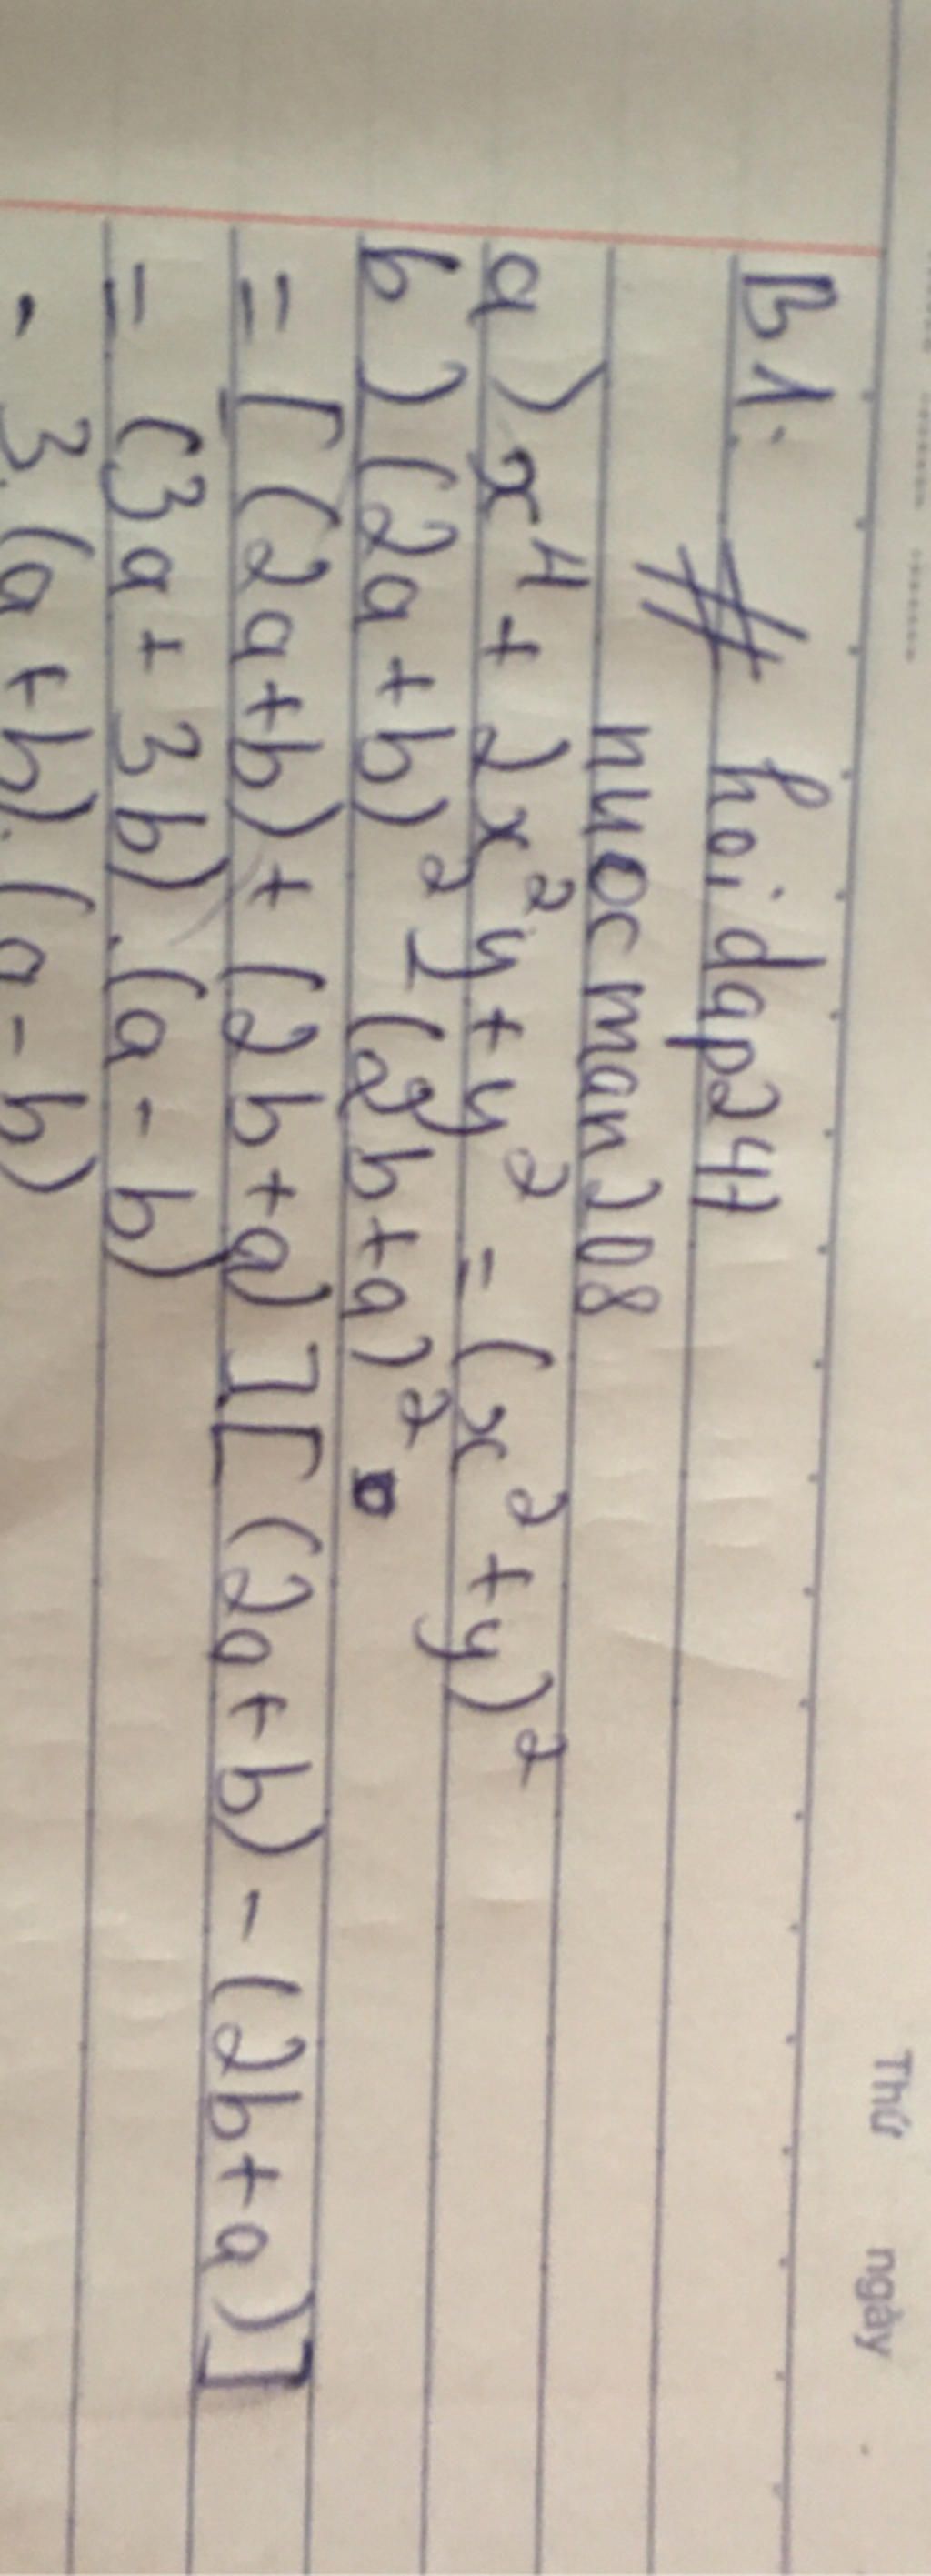 Thứ ngày
B1. # hoidap247
nuocman208
a) x⁴ + 2x²y + y² = (x² + y)²
b) (2a + b)² - (2b + a)²
= [(2a + b) + (2b + a)][(2a + b) - (2b + a)]
= (3a + 3b).(a - b)
= 3.(a + b).(a - b)